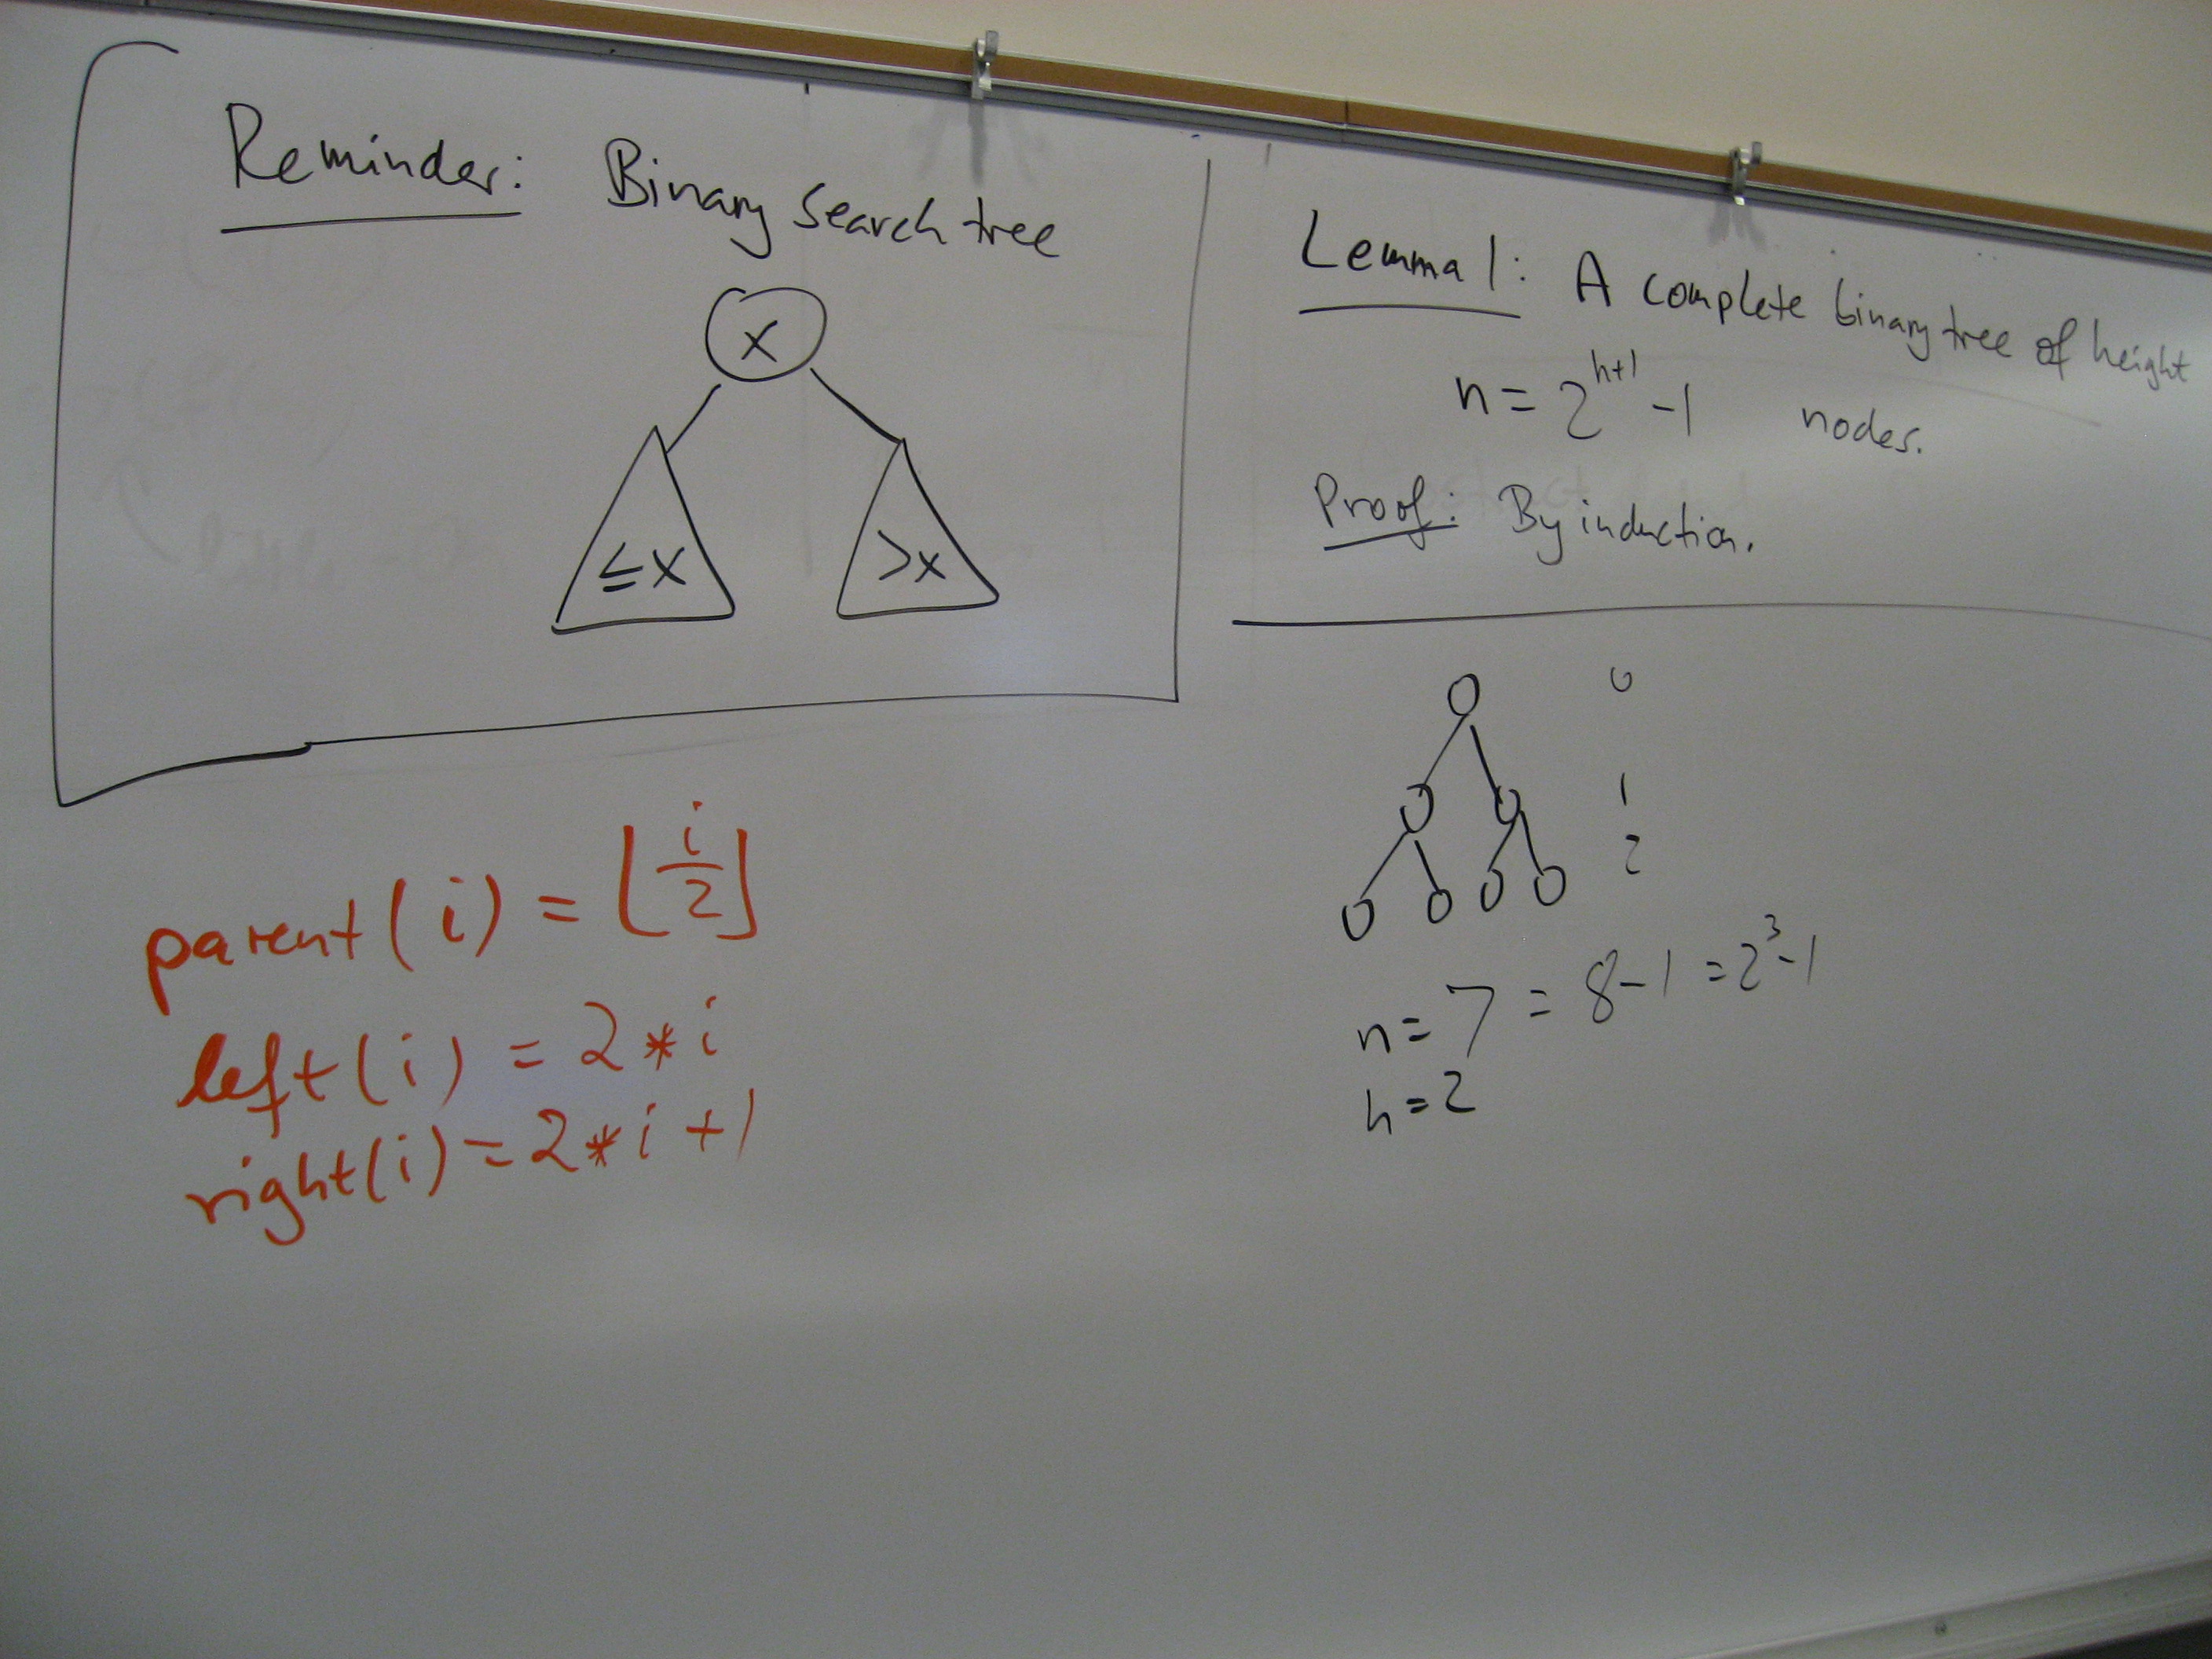 Reminder: Binary search tree
x
≤x >x
parent(i) = ⌊i/2⌋
left(i) = 2*i
right(i) = 2*i+1
Lemma 1: A complete binary tree of height
n = 2^{h+1} -1 nodes.
Proof: By induction.
0
1
2
n = 7 = 8-1 = 2^3-1
h=2